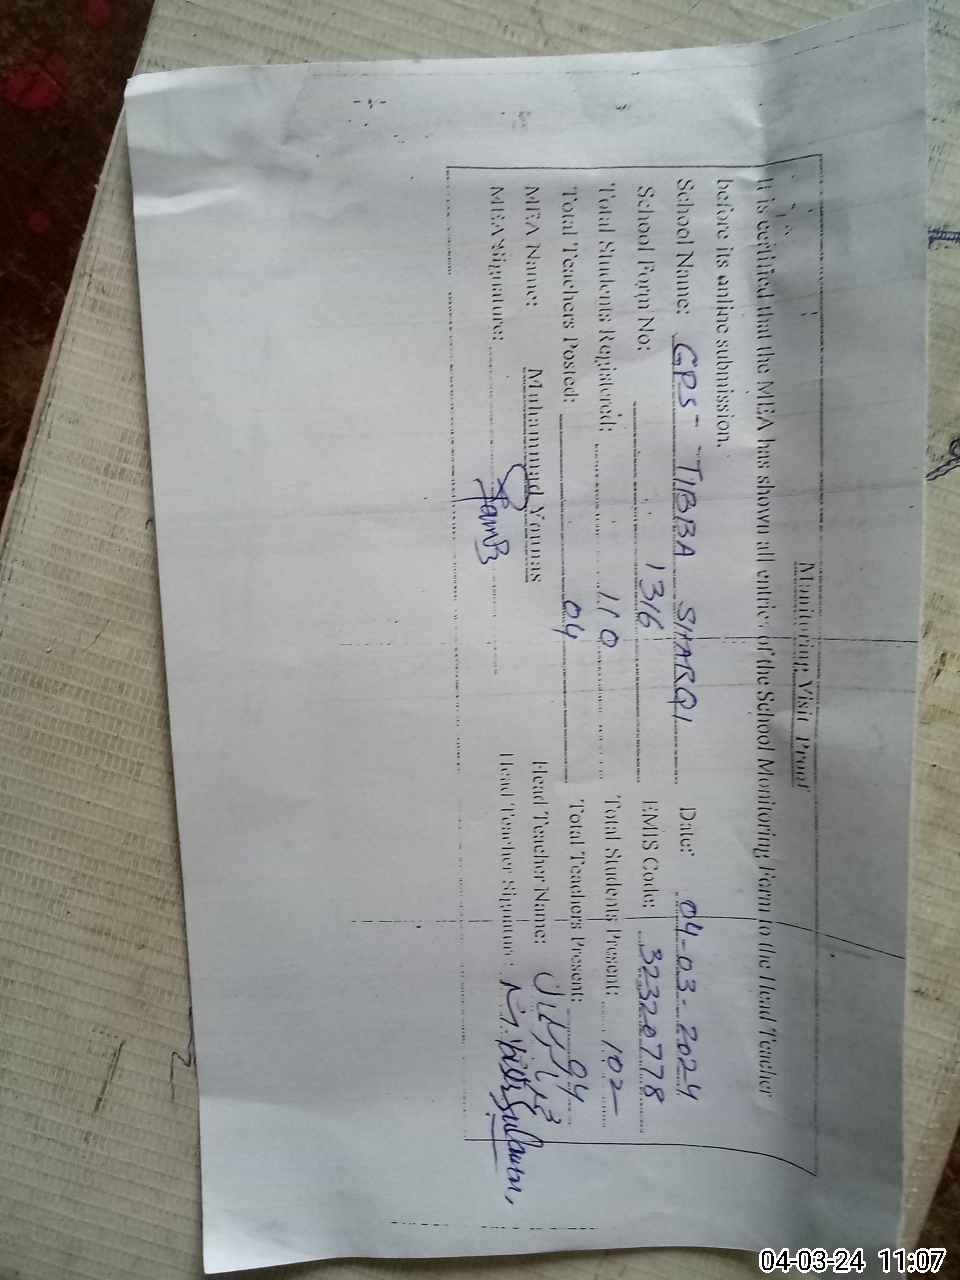 Monitoring Visit Proof
It is certified that the MEA has shown all entries of the School Monitoring Form to the Head Teacher
before its online submission.
School Name: GPS - TIBBA SHARQI Date: 04-03-2024
School Form No: 1316 EMIS Code: 32320778
Total Students Registered: 110 Total Students Present: 102
Total Teachers Posted: 04 Total Teachers Present: 04
MEA Name: Muhammad Younas Head Teacher Name:
MEA Signature: Head Teacher Signature:
04-03-24 11:07